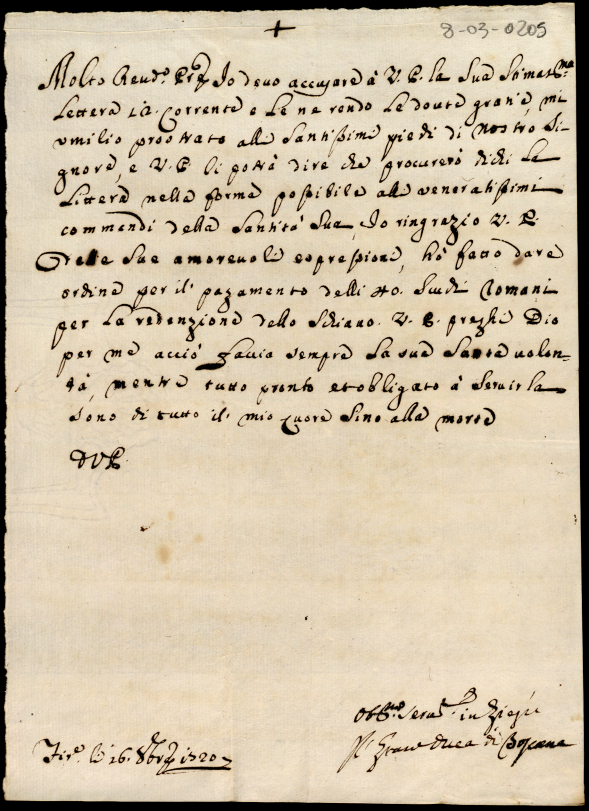 8-03-0205
Molto Revd.º Pre Io devo accusare à V. P. la Sua Stimat.ma
Lettera Corrente e Le ne rendo Le dovute grazie, mi
umilio prostrato alli Santissimi piedi di Nostro Si-
gnore, e V. P. li potrà dire che procurerò la
nella forme possibile alli veneratissimi
commandi della Santità Sua, Io ringrazio V. P.
delle Sue amorevoli espressioni, hò fatto dare
ordine per il pagamento delli 40. Scudi Romani
per La redenzione dello Schiavo. V. P. preghi Dio
per me acciò faccia sempre La sua Santa volon-
tà, mentre tutto pronto et obbligato à Servirla
Sono di tutto il mio Cuore Sino alla morte
D V P
Obb.mo in Giesù
Il Gran Duca di Toscana
Fir.e li 26. 8bre 1720